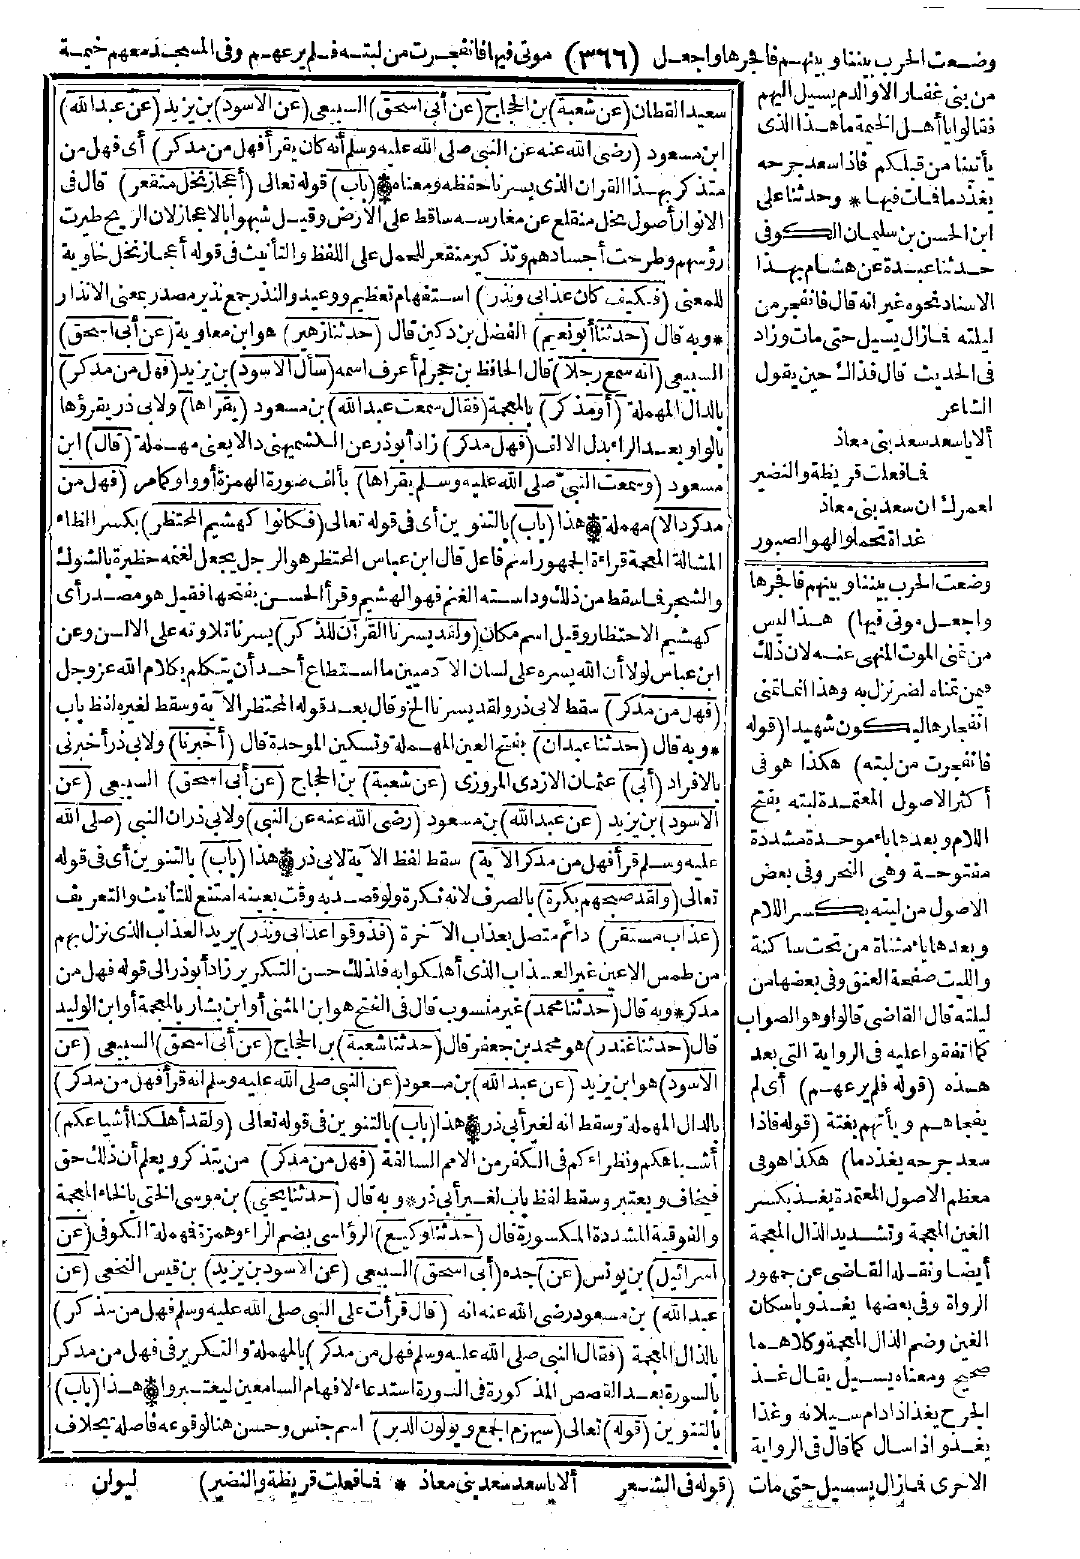 وضعت الحرب بيننا وبينهم فافجرها واجعل (٣٦٦) موتى فيها فانفجرت من لبته فلم يرعهم وفى المسجد معهم خيمة
من بنى غفار الا والدم يسيل اليهم
فقالوا يا أهل الخيمة ما هذا الذى
يأتينا من قبلكم فاذا سعد جرحه
يغذ دما فمات فيها * وحدثنا على
ابن الحسن بن سليمان الكوفى
حدثنا عبدة عن هشام بهذا
الاسناد نحوه غير انه قال فانفجر من
ليلته فمازال يسيل حتى مات وزاد
فى الحديث قال فذاك حين يقول
الشاعر
ألا يا سعد سعد بنى معاذ
فما فعلت قريظة والنضير
لعمرك ان سعد بنى معاذ
غداة تحملوا لهو الصبور
وضعت الحرب بيننا وبينهم فافجرها
واجعل موتى فيها) هذا ليس
من تمنى الموت المنهى عنه لان ذلك
فيمن تمناه لضر نزل به وهذا انما تمنى
انفجارها ليكون شهيدا (قوله
فانفجرت من لبته) هكذا هو فى
أكثر الاصول المعتمدة لبته بفتح
اللام وبعدها باء موحدة مشددة
مفتوحة وهى النحر وفى بعض
الاصول من ليته بكسر اللام
وبعدها ياء مثناة من تحت ساكنة
والليت صفحة العنق وفى بعضها من
ليلته قال القاضى قالوا وهو الصواب
كما اتفقوا عليه فى الرواية التى بعد
هذه (قوله فلم يرعهم) أى لم
يفجأهم ويأتهم بغتة (قوله فاذا
سعد جرحه يغذ دما) هكذا هو فى
معظم الاصول المعتمدة يغذ بكسر
الغين المعجمة وتشديد الذال المعجمة
أيضا ونقله القاضى عن جمهور
الرواة وفى بعضها يغذو باسكان
الغين وضم الذال المعجمة وكلاهما
صحيح ومعناه يسيل يقال غذ
الجرح يغذ اذا دام سيلانه وغذا
يغذو اذا سال كما قال فى الرواية
الاخرى فمازال يسيل حتى مات
سعيد القطان (عن شعبة) بن الحجاج (عن أبى اسحق) السبيعى (عن الاسود) بن يزيد (عن عبد الله)
ابن مسعود (رضى الله عنه عن النبى صلى الله عليه وسلم أنه كان يقرأ فهل من مدكر) أى فهل من
متذكر بهذا القرآن الذى يسرنا حفظه ومعناه (باب) قوله تعالى (أعجاز نخل منقعر) قال فى
الانوار أصول نخل منقلع عن مغارسه ساقط على الأرض وقيل شبهوا بالاعجاز لان الريح طيرت
رؤسهم وطرحت أجسادهم وتذكير منقعر للحمل على اللفظ والتأنيث فى قوله أعجاز نخل خاوية
للمعنى (فكيف كان عذابى ونذر) استفهام تعظيم ووعيد والنذر جمع نذير مصدر بمعنى الانذار
* وبه قال (حدثنا أبو نعيم) الفضل بن دكين قال (حدثنا زهير) هو ابن معاوية (عن أبى اسحق)
السبيعى (انه سمع رجلا) قال الحافظ بن حجر لم أعرف اسمه (سأل الاسود) بن يزيد (فهل من مدكر)
بالدال المهملة (أو مذكر) بالمعجمة (فقال سمعت عبد الله) بن مسعود (يقرأها) ولابى ذر يقرؤها
بالواو بعد الراء بدل الالف (فهل مدكر) زاد أبو ذر عن الكشميهنى دالا يعنى مهملة (قال) ابن
مسعود (وسمعت النبى صلى الله عليه وسلم يقرأها) بألف صورة الهمزة أو واو كما مر (فهل من
مدكر دالا) مهملة هذا (باب) بالتنوين أى فى قوله تعالى (فكانوا كهشيم المحتظر) بكسر الظاء
المشالة المعجمة قراءة الجمهور اسم فاعل قال ابن عباس المحتظر هو الرجل يجعل لغنمه حظيرة بالشوك
والشجر فما سقط من ذلك وداسته الغنم فهو الهشيم وقرأ الحسن بفتحها فقيل هو مصدر أى
كهشيم الاحتظار وقيل اسم مكان (ولقد يسرنا القرآن للذكر) يسرنا تلاوته على الالسن وعن
ابن عباس لولا أن الله يسره على لسان الآدميين ما استطاع أحد أن يتكلم بكلام الله عز وجل
(فهل من مدكر) سقط لابى ذر ولقد يسرنا الخ وقال بعد قوله المحتظر الآية وسقط لغيره لفظ باب
* وبه قال (حدثنا عبدان) بفتح العين المهملة وتسكين الموحدة قال (أخبرنا) ولابى ذر أخبرنى
بالافراد (أبى) عثمان الازدى المروزى (عن شعبة) بن الحجاج (عن أبى اسحق) السبيعى (عن
الاسود) بن يزيد (عن عبد الله) بن مسعود (رضى الله عنه عن النبى) ولابى ذر ان النبى (صلى الله
عليه وسلم قرأ فهل من مدكر الآية) سقط لفظ الآية لابى ذر هذا (باب) بالتنوين أى فى قوله
تعالى (ولقد صبحهم بكرة) بالصرف لانه نكرة ولو قصد به وقت بعينه امتنع للتأنيث والتعريف
(عذاب مستقر) دائم متصل بعذاب الآخرة (فذوقوا عذابى ونذر) يريد العذاب الذى نزل بهم
من طمس الاعين غير العذاب الذى أهلكوا به فلذلك حسن التكرير زاد أبو ذر الى قوله فهل من
مدكر * وبه قال (حدثنا محمد) غير منسوب قال فى الفتح هو ابن المثنى أو ابن بشار بالمعجمة أو ابن الوليد
قال (حدثنا غندر) هو محمد بن جعفر قال (حدثنا شعبة) بن الحجاج (عن أبى اسحق) السبيعى (عن
الاسود) هو ابن يزيد (عن عبد الله) بن مسعود (عن النبى صلى الله عليه وسلم انه قرأ فهل من مدكر)
بالدال المهملة وسقط انه لغير أبى ذر هذا (باب) بالتنوين فى قوله تعالى (ولقد أهلكنا أشياعكم)
أشباهكم ونظراءكم فى الكفر من الامم السالفة (فهل من مدكر) من يتذكر ويعلم أن ذلك حق
فيخاف ويعتبر وسقط لفظ باب لغير أبى ذر * وبه قال (حدثنا يحيى) بن موسى الختى بالخاء المعجمة
والفوقية المشددة المكسورة قال (حدثنا وكيع) الرؤاسى بضم الراء وهمزة فمهملة الكوفى (عن
اسرائيل) بن يونس (عن) جده (أبى اسحق) السبيعى (عن الاسود بن يزيد) بن قيس النخعى (عن
عبد الله) بن مسعود رضى الله عنه انه (قال قرأت على النبى صلى الله عليه وسلم فهل من مذكر)
بالذال المعجمة (فقال النبى صلى الله عليه وسلم فهل من مدكر) بالمهملة والتكرير فى فهل من مدكر
بالسورة بعد القصص المذكورة فى السورة استدعاء لافهام السامعين ليعتبروا هذا (باب)
بالتنوين (قوله) تعالى (سيهزم الجمع ويولون الدبر) اسم جنس وحسن هنا لوقوعه فاصلة بخلاف
(قوله فى الشعر ألا يا سعد سعد بنى معاذ * فما فعلت قريظة والنضير) ليولن